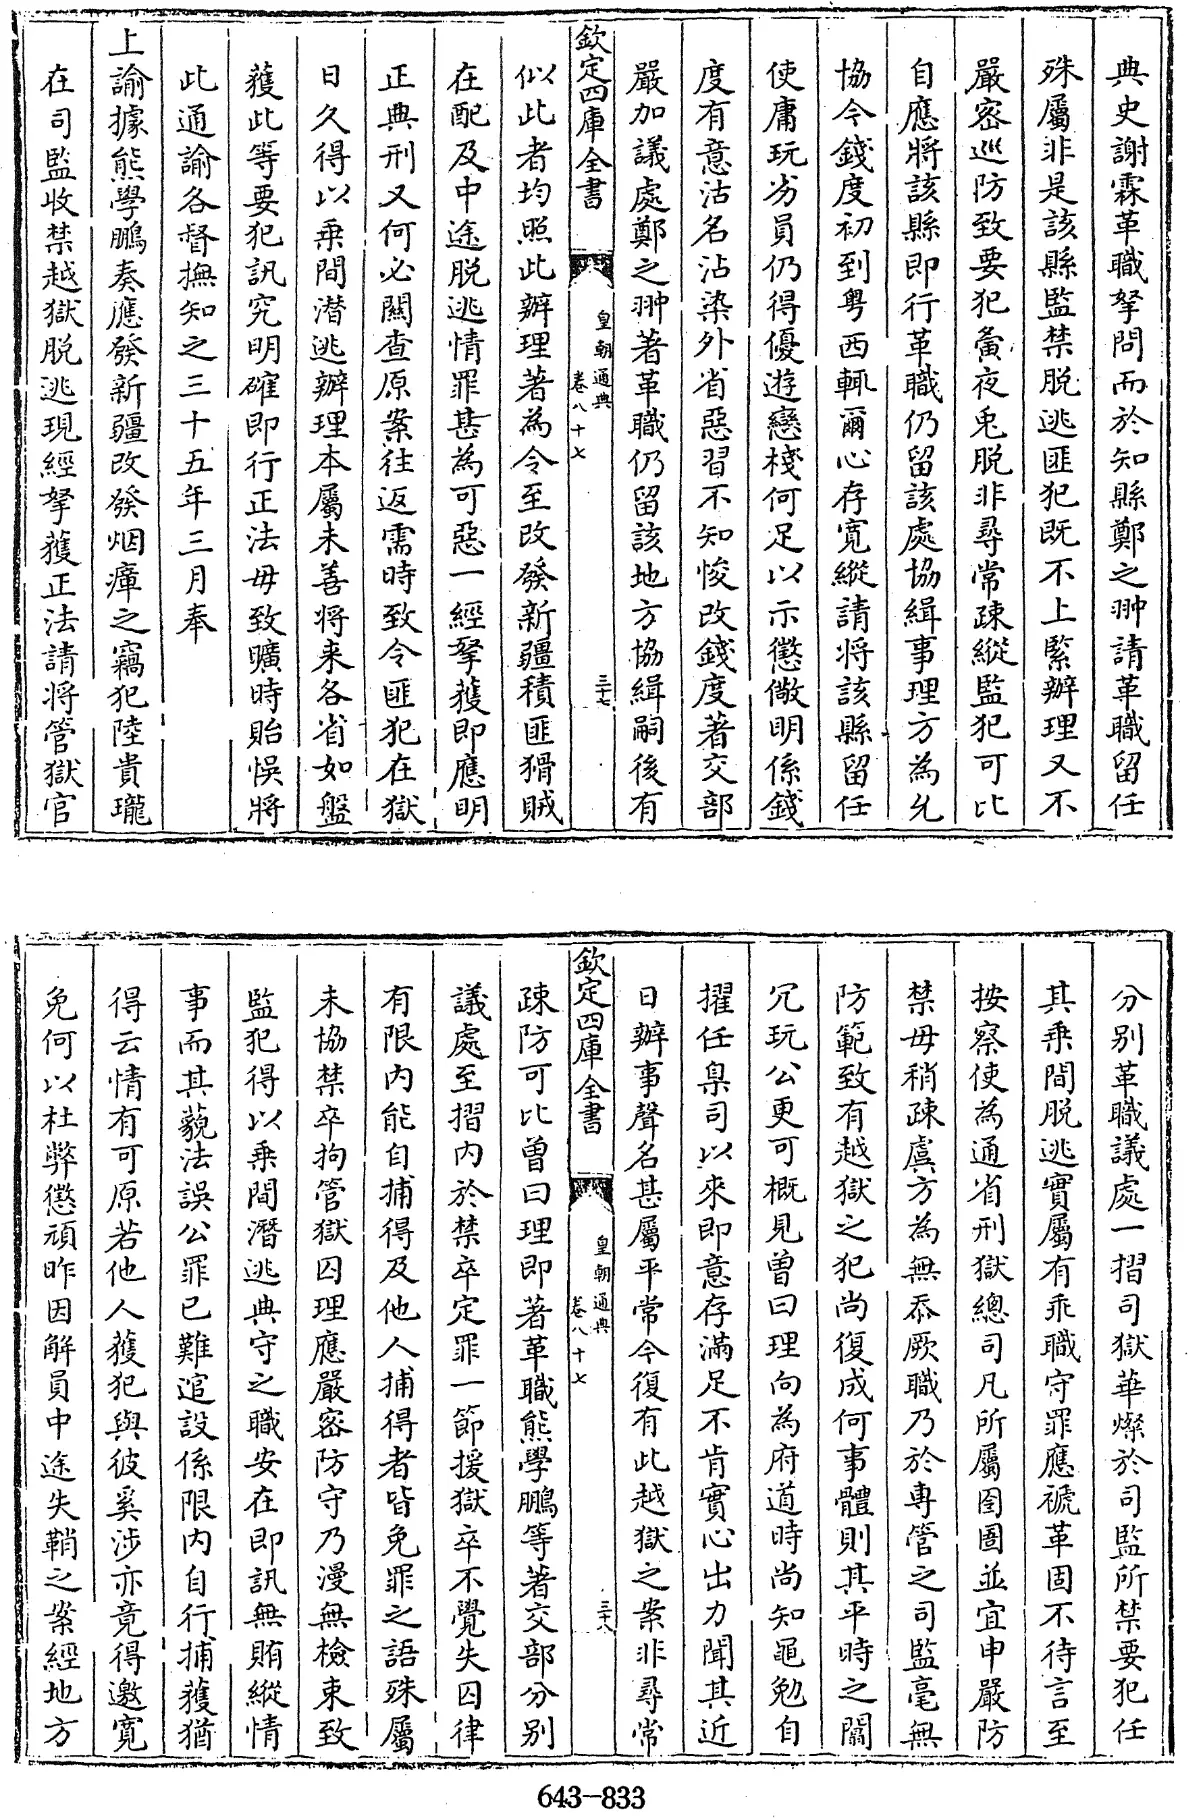 典史謝霖革職拏問而於知縣鄭之翀請革職留任
殊屬非是該縣監禁脱逃匪犯既不上緊辦理又不
嚴密巡防致要犯夤夜兎脱非尋常疎縱監犯可比
自應將該縣即行革職仍留該處協緝事理方為允
協今錢度初到粤西輒爾心存寛縱請將該縣留任
使庸玩劣員仍得優遊戀棧何足以示懲儆明係錢
度有意沽名沾染外省惡習不知悛改錢度著交部
嚴加議處鄭之翀著革職仍留該地方協緝嗣後有
欽定四庫全書
皇朝通典
卷八十七
三十七
似此者均照此辦理著為令至改發新疆積匪猾賊
在配及中途脱逃情罪甚為可惡一經拏獲即應明
正典刑又何必關查原案往返需時致令匪犯在獄
日久得以乗間潜逃辦理本屬未善將来各省如盤
獲此等要犯訊究明確即行正法毋致曠時貽悞將
此通諭各督撫知之三十五年三月奉
上諭據熊學鵬奏應發新疆改發烟瘴之竊犯陸貴瓏
在司監收禁越獄脱逃現經拏獲正法請將管獄官
分别革職議處一摺司獄華燦於司監所禁要犯任
其乗間脱逃實屬有乖職守罪應褫革固不待言至
按察使為通省刑獄總司凡所屬囹圄並宜申嚴防
禁毋稍疎虞方為無忝厥職乃於専管之司監毫無
防範致有越獄之犯尚復成何事體則其平時之闒
冗玩公更可概見曾曰理向為府道時尚知黽勉自
擢任臬司以來即意存滿足不肯實心出力聞其近
日辦事聲名甚屬平常今復有此越獄之案非尋常
欽定四庫全書
皇朝通典
卷八十七
三十八
疎防可比曾曰理即著革職熊學鵬等著交部分别
議處至摺内於禁卒定罪一節援獄卒不覺失囚律
有限内能自捕得及他人捕得者皆免罪之語殊屬
未協禁卒拘管獄囚理應嚴密防守乃漫無檢束致
監犯得以乗間潛逃典守之職安在即訊無賄縱情
事而其藐法誤公罪已難逭設係限内自行捕獲猶
得云情有可原若他人獲犯與彼奚涉亦竟得邀寛
免何以杜弊懲頑昨因解員中途失鞘之案經地方
643-833